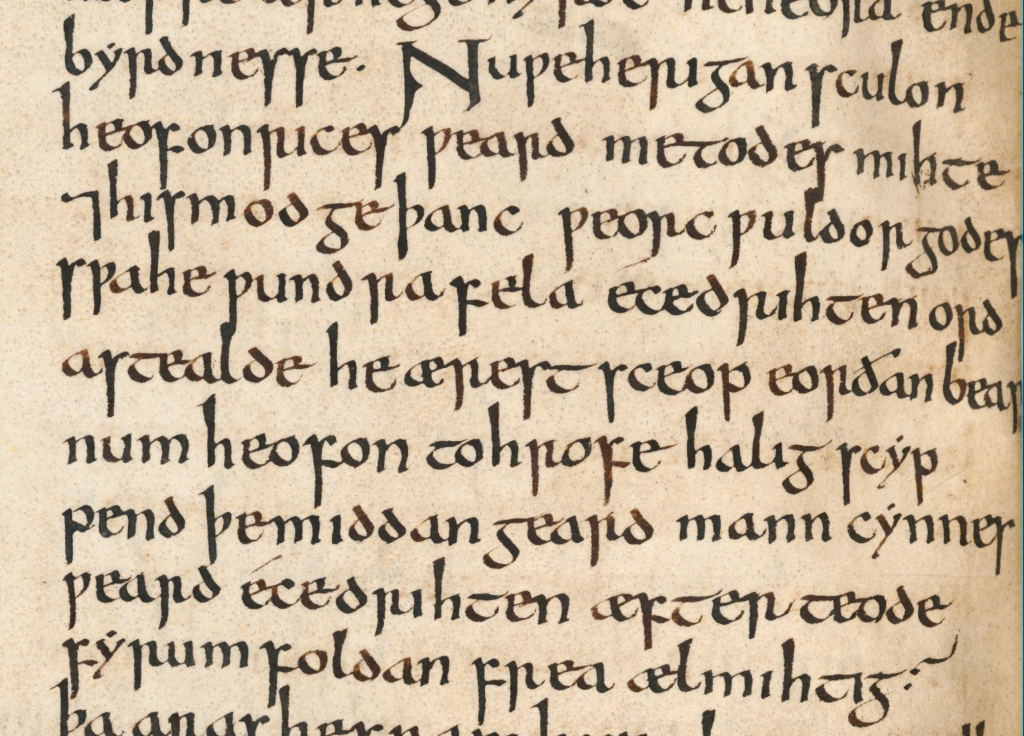 ende
byrdnesse. Nu ƿe herigan sculon
heofonrices ƿeard metodes mihte
⁊ his modgeþanc ƿeorc ƿuldor godes
sƿa he ƿundra fela éce drihten ord
astealde he ærest sceop eorðan bear
num heofon to hrofe halig scyp
pend þe middangeard manncynnes
ƿeard éce drihten æfter teode
fyrum foldan frea ælmihtig
þa aras he